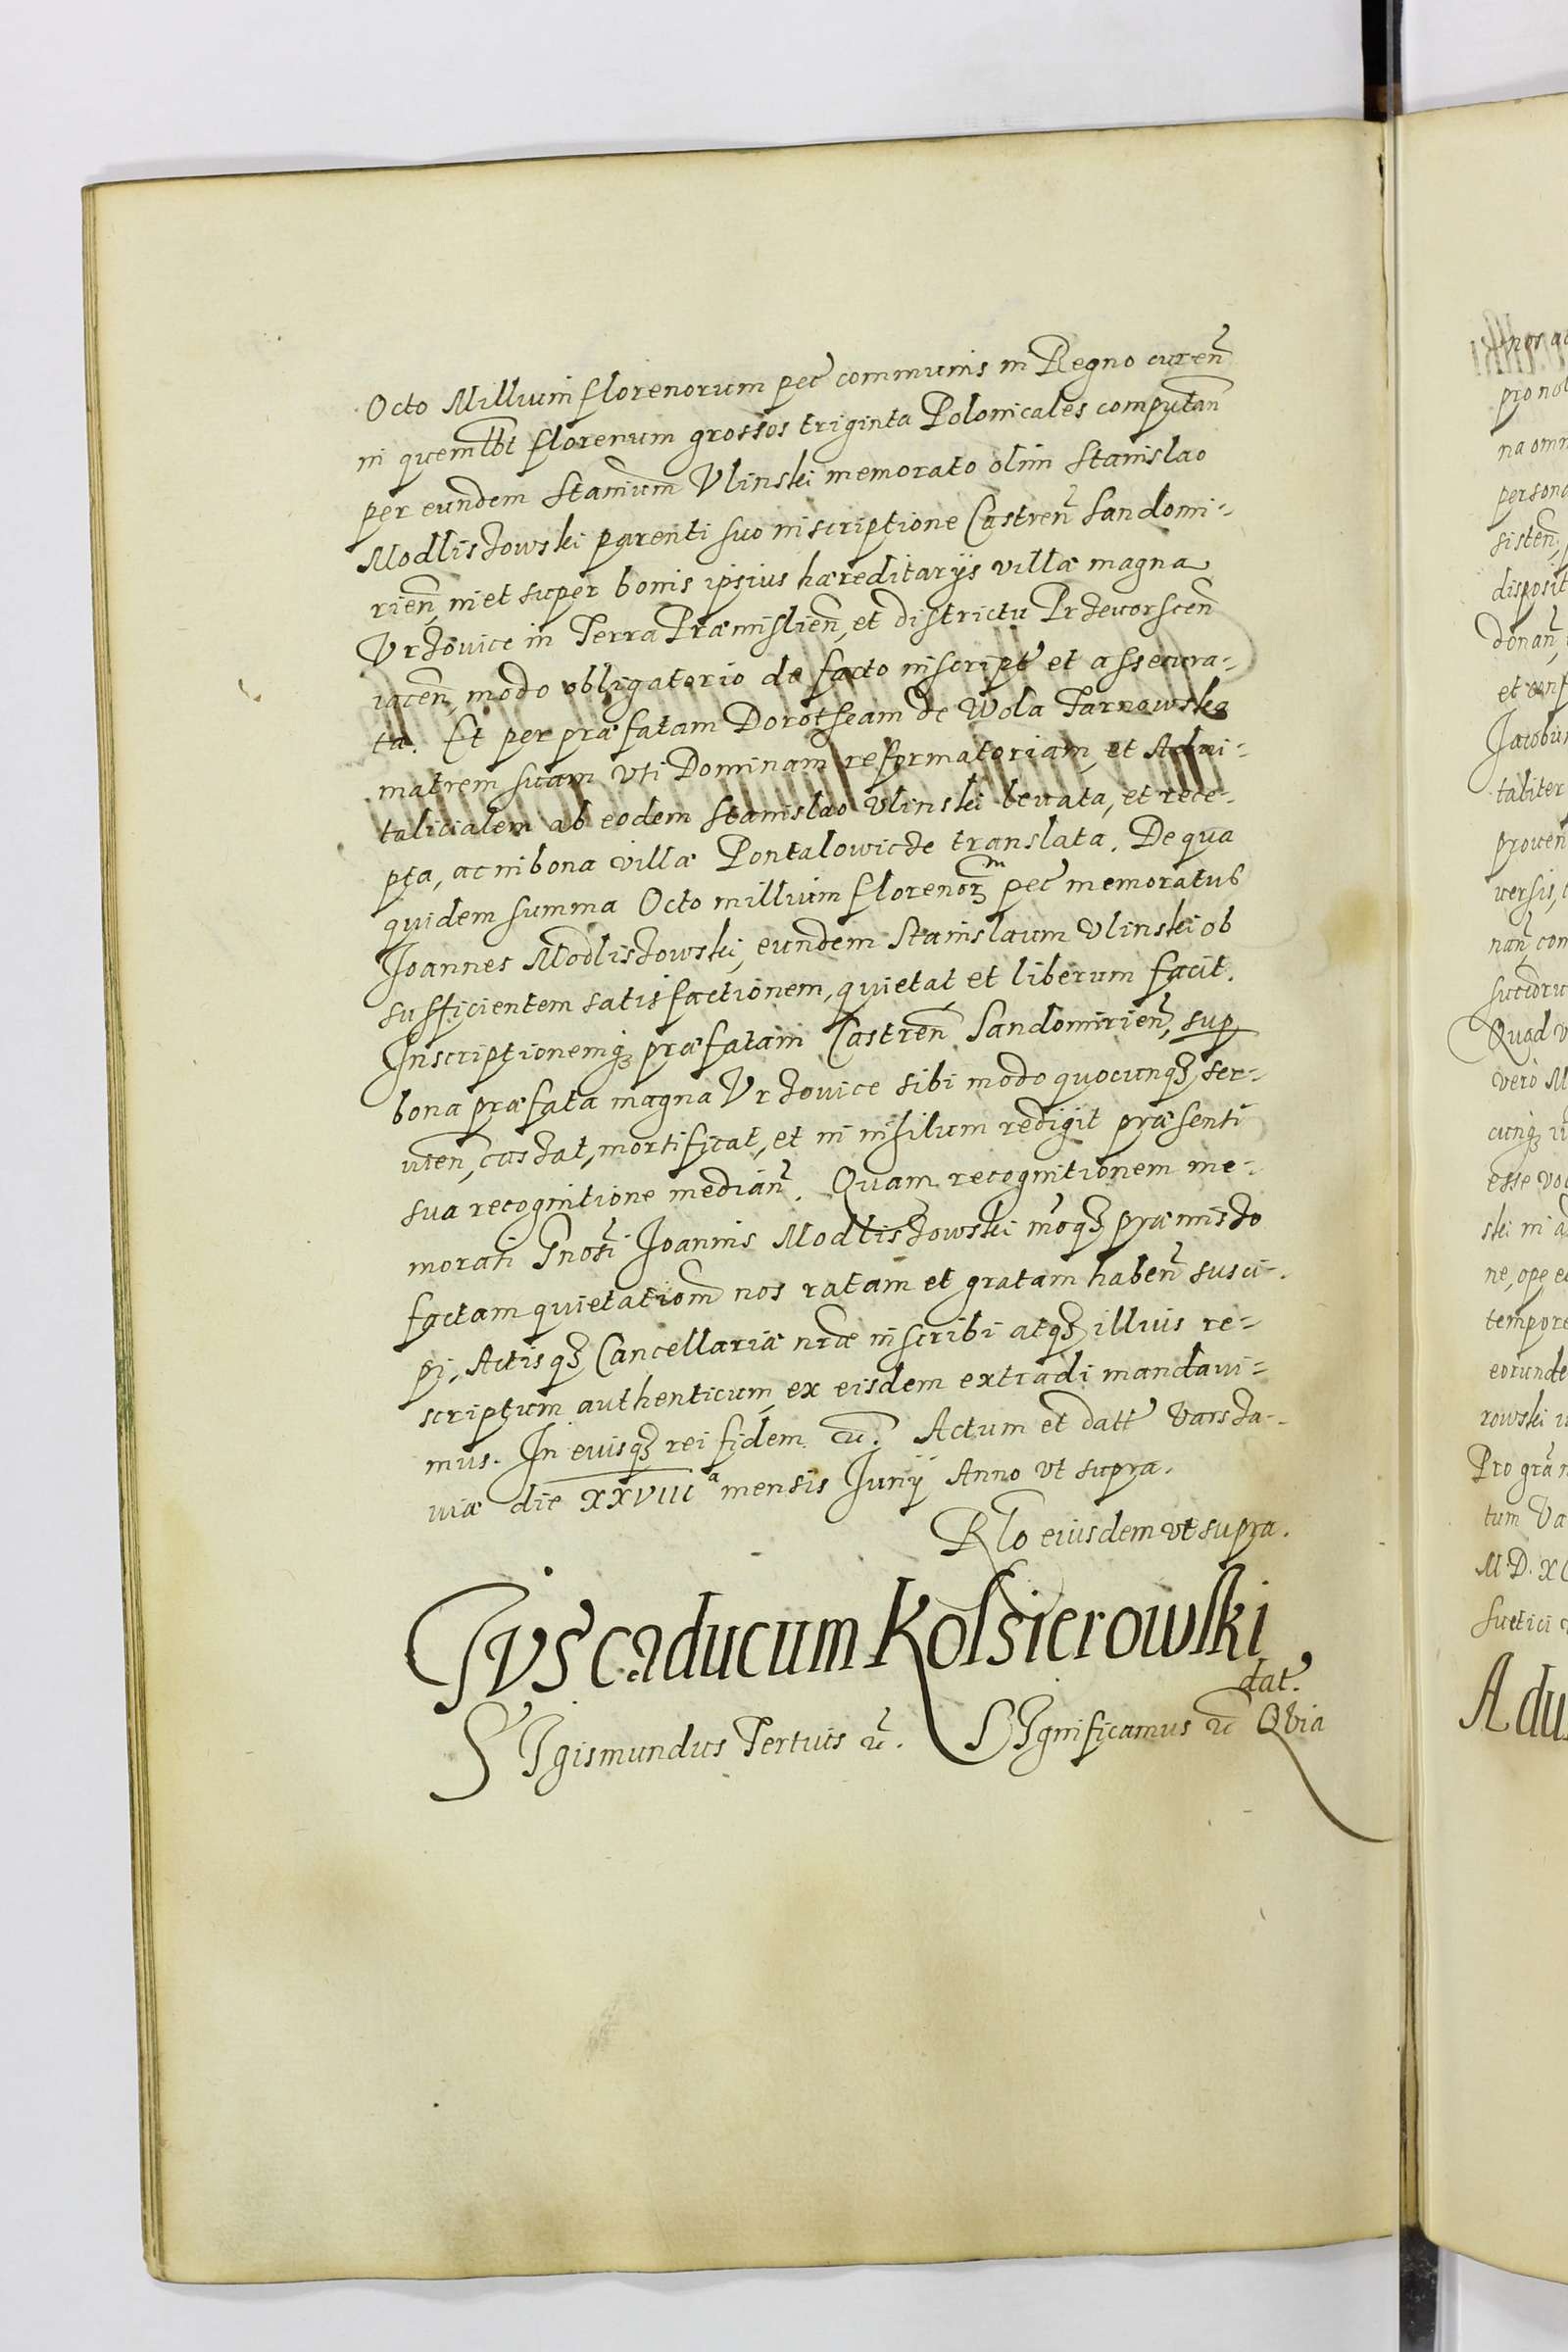 Octo Millium florenorum pec communis in Regno curen̄
in quemlbt florenum grossos triginta Polonicales computan̄
per eundem Stanium̄ Vlinski memorato olim Stanislao
Modliszowski parenti suo inscriptione Castren̄ Sandomi-
rien̄, in et super bonis ipsius hæreditarijs villæ magna
Vrzovice in Terra Præmislien̄, et districtu Przeuorscen̄
iacen̄, modo obligatorio de facto inscript et assecura-
ta. Et per præfatam Dorotheam de Wola Tarnowska
matrem suam vti Dominam reformatoriam, et Adui-
talicialem ab eodem Stanislao Vlinski leuata, et rece-
pta, ac in bona villæ Pontalowicze translata. De qua
quidem summa Octo millium florenorꝫ m pec memoratus
Joannes Modliszowski, eundem Stanislaum Vlinski ob
sufficientem satisfactionem, quietat et liberum facit.
Inscriptionemqꝫ præfatam Castren̄ Sandomirien̄, sup
bona præfata magna Vrzouice sibi modo quocunqꝫ ser-
uien̄, cassat, mortificat, et in nihilum redigit præsenti
sua recognitione median̄. Quam recognitionem me-
morati Gnosi Joannis Modliszowski moqꝫ præmisso
factam quietationem̄ nos ratam et gratam haben̄ susci-
pi, Actisqꝫ Cancellariæ nræ inscribi atqꝫ illius re-
scriptum authenticum, ex eisdem extradi mandaui-
mus. In cuius qꝫ rei fidem &c. Actum et datt Varsza-
uiæ die XXVIII a mensis Junij Anno vt supra.
Rlo eiusdem vt supra.
Jus caducum Kolsierowski
dat.
SIgismundus Tertius &c. SIgnificamus &c Qvia
pro not
persona
sisten̄,
disposit
donan̄,
et conf
Jacobus
taliter
prouen
versis,
nan̄, com
Quod v
vero M
cunqꝫ
esse vo
ski in a
tempore
eorunde
rowski
Pro gra
tum Va
M.D.X
Suetici
Adu